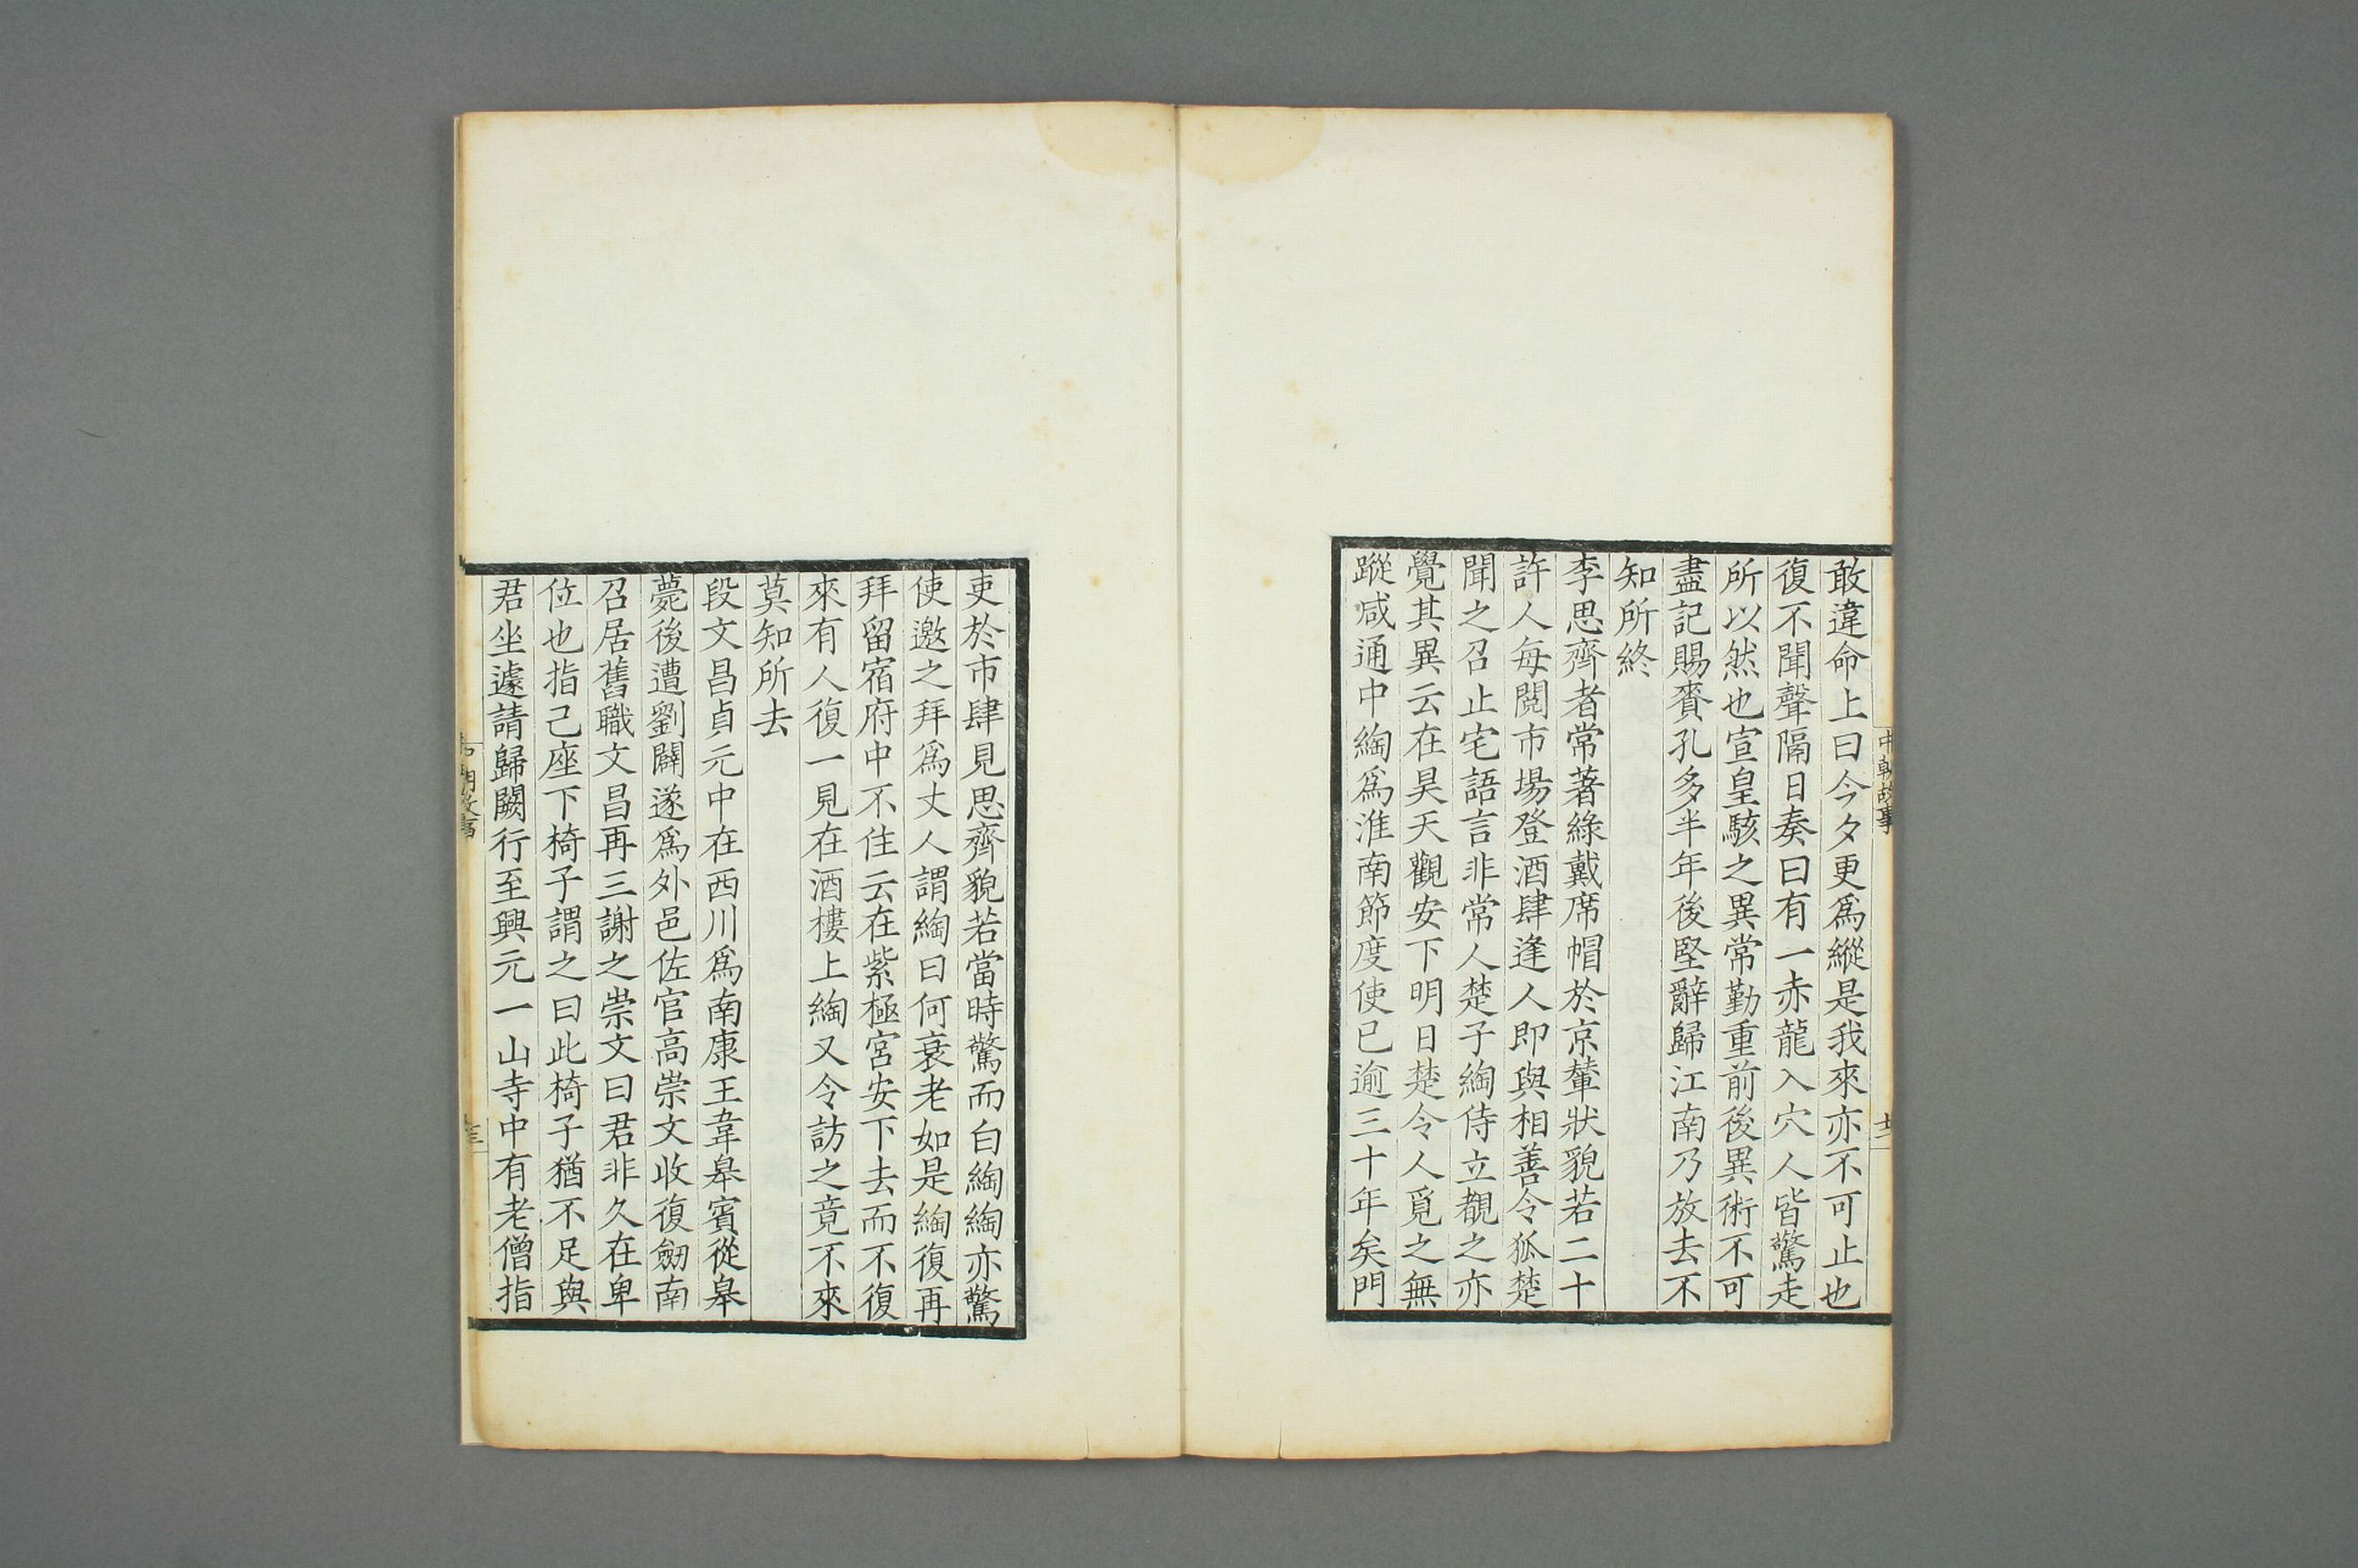 敢違命上曰今夕更爲縱是我來亦不可止也
復不聞聲隔日奏曰有一赤龍入穴人皆驚走
所以然也宣皇駭之異常勤重前後異術不可
盡記賜賚孔多半年後堅辭歸江南乃放去不
知所終
李思齊者常著綠戴席帽於京輦狀貌若二十
許人每閱市場登酒肆逢人即與相善令狐楚
聞之召止宅語言非常人楚子綯侍立覩之亦
覺其異云在昊天觀安下明日楚令人覓之無
蹤咸通中綯爲淮南節度使已逾三十年矣門
吏於市肆見思齊貌若當時驚而白綯綯亦驚
使邀之拜爲丈人謂綯曰何衰老如是綯復再
拜留宿府中不住云在紫極宮安下去而不復
來有人復一見在酒樓上綯又令訪之竟不來
莫知所去
段文昌貞元中在西川爲南康王韋皋賓從皋
薨後遭劉闢逐爲外邑佐官高崇文收復劒南
召居舊職文昌再三謝之崇文曰君非久在卑
位也指己座下椅子謂之曰此椅子猶不足與
君坐遽請歸闕行至興元一山寺中有老僧指
中朝故事